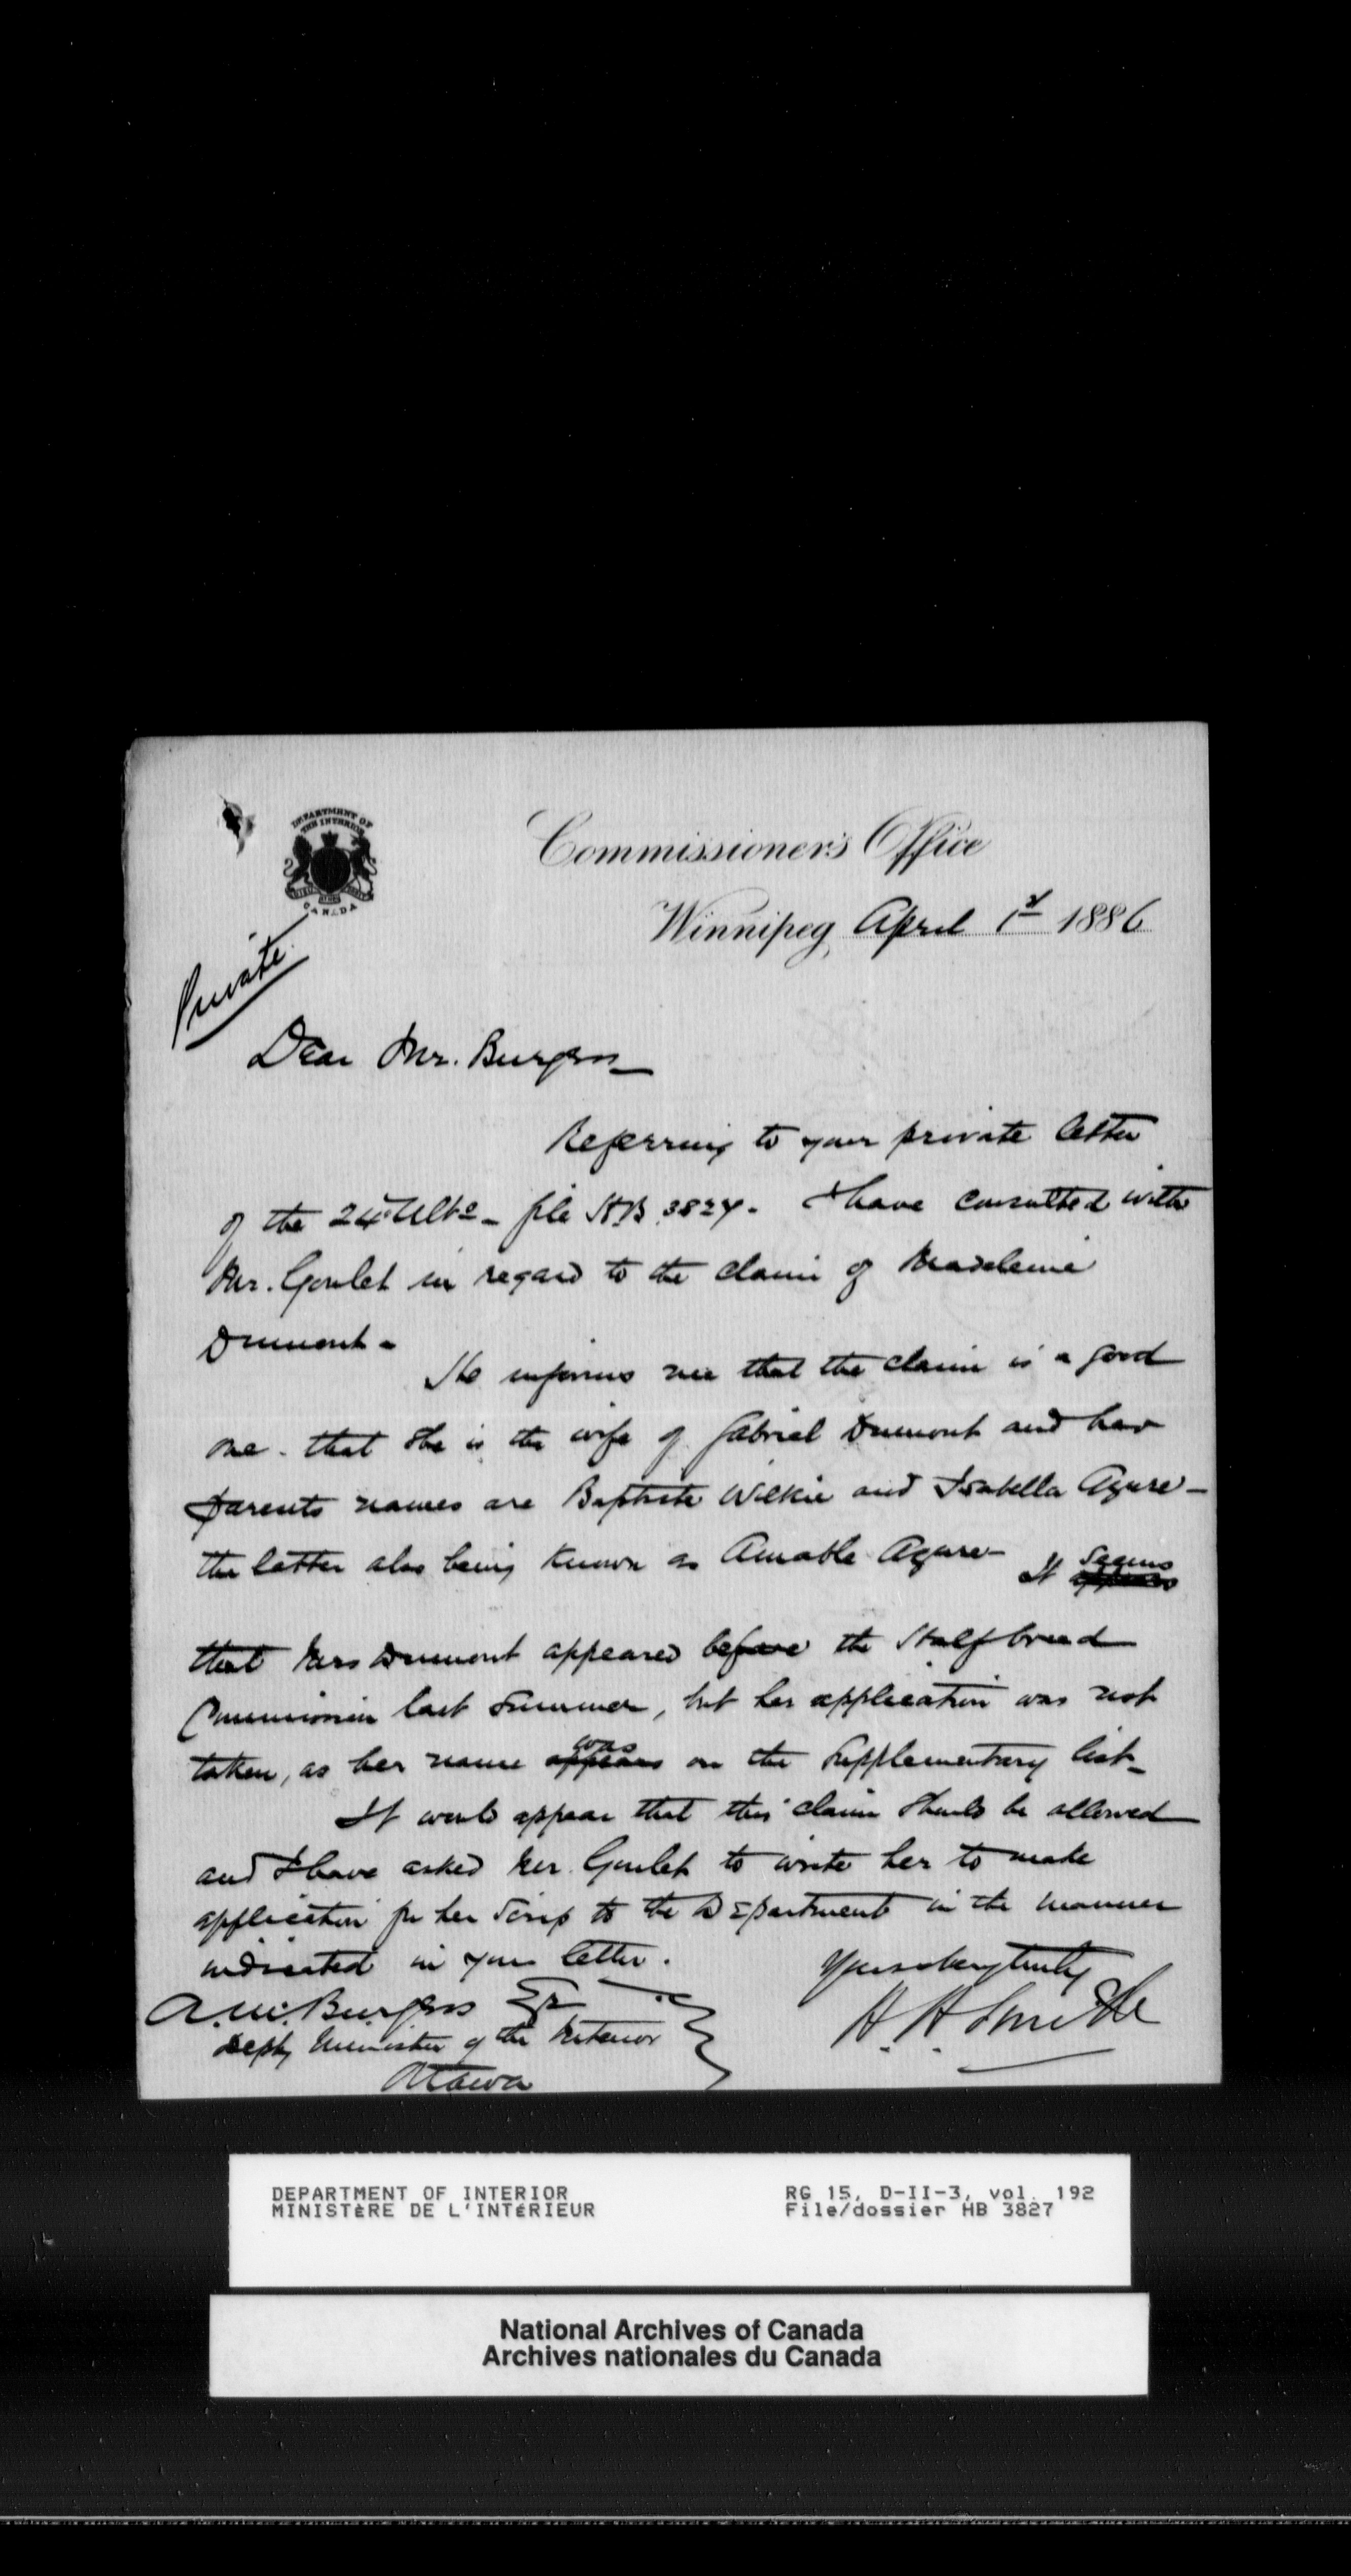 DEPARTMENT OF
THE INTERIOR
CANADA
Commissioner's Office
Winnipeg, April 1st 1886
Private
Dear Mr. Burgess
Referring to your private letter
of the 24th Ulto - file HB 3827. I have consulted with
Mr. Goulet in regard to the claim of Madeleine
Dumont -
He informs me that the claim is a good
one - that she is the wife of Gabriel Dumont and her
parents names are Baptiste Wilkie and Isabella Azure -
the latter also being known as Amable Azure - It seems
appears
that Mrs Dumont appeared before the Half breed
Commission last Summer, but her application was not
taken, as her name appears was on the Supplementary list -
It would appear that this claim should be allowed
and I have asked Mr. Goulet to write her to make
application for her Scrip to the Department in the manner
indicated in your letter.
Yours very truly
H. H. Smith
A. M. Burgess Esq
Depty Minister of the Interior
Ottawa
DEPARTMENT OF INTERIOR
MINISTÈRE DE L'INTÉRIEUR
RG 15, D-II-3, vol. 192
File/dossier HB 3827
National Archives of Canada
Archives nationales du Canada